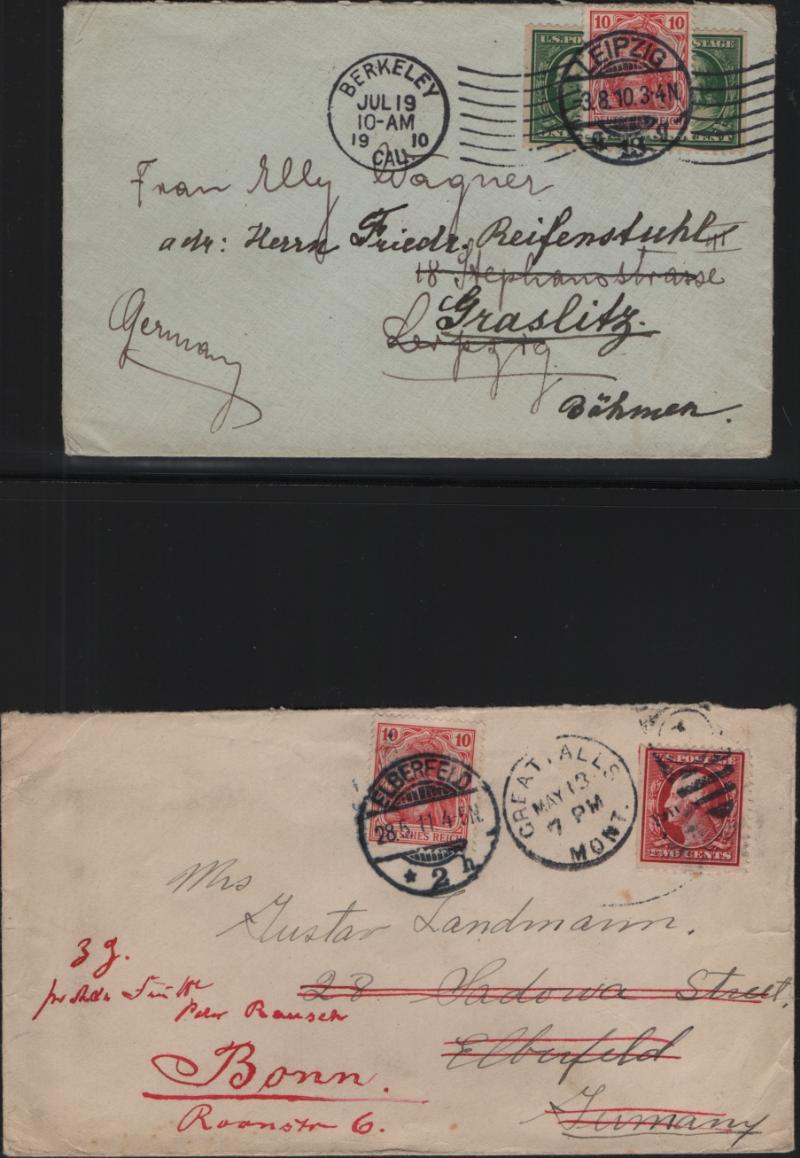 BERKELEY
JUL 19
10-AM
19 10
CAL.
10 10
U.S. POSTAGE
LEIPZIG
3.8.10.3-4N.
Frau Elly Wagner
adr: Herrn Friedr. Reifenstuhl
18 Stephanstrasse
Graslitz.
Leipzig
Germany
Böhmen.
10 10
ELBERFELD
28.5.11.4-5N.
* 2 h
GREAT FALLS
MAY 13
7 PM
MONT.
U.S. POSTAGE
TWO CENTS
Mrs
Gustav Landmann.
28 Sadowa Street,
Elberfeld
Germany
Bonn.
Roonstr 6.